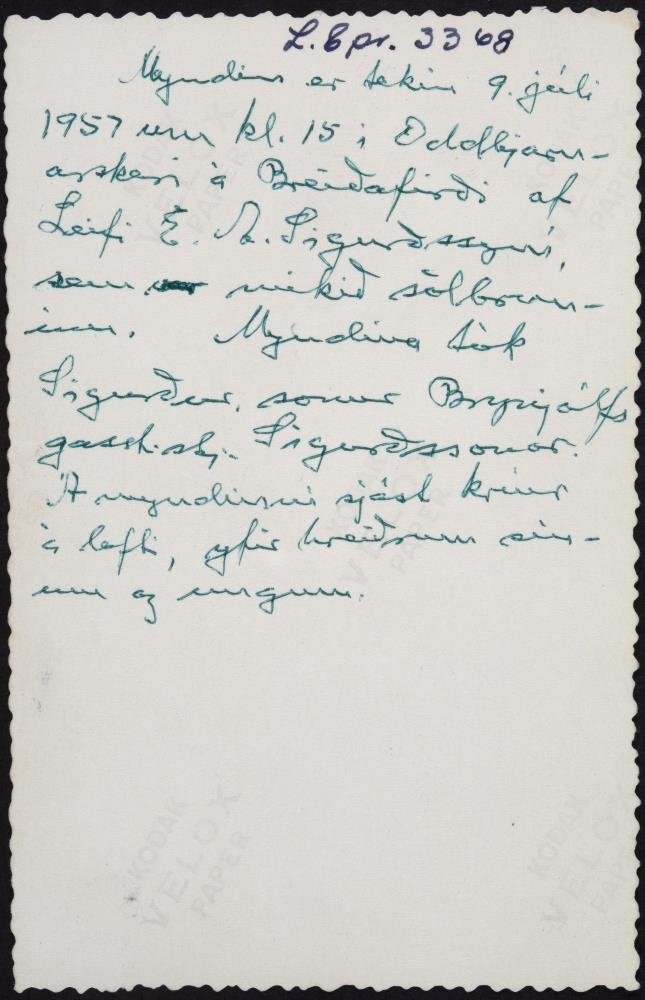 L.6pr. 3368
Myndin er tekin 9. júlí
1957 um kl. 15 í Oddbjarn-
arskeri á Breiðafirði af
Leifi E. A. Sigurðssyni,
sem mikið sólbrun-
inn. Myndina tók
Sigurður, sonur Brynjólfs
gasst.stj. Sigurðssonar.
Á myndinni sjást kríur
á lofti, yfir hreiðrum sín-
um og ungum.
KODAK
VELOX
PAPER
KODAK
VELOX
PAPER